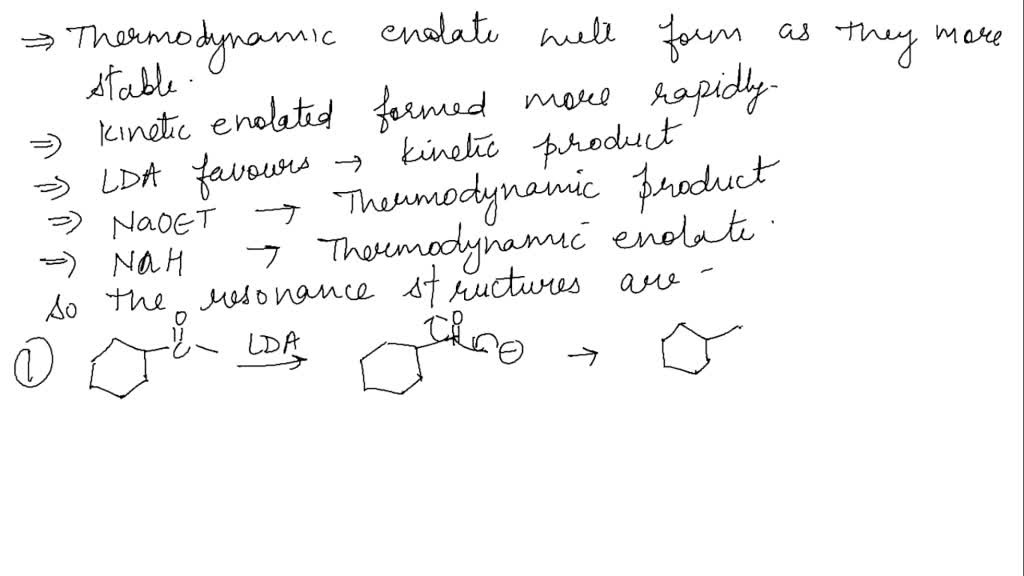 ⇒ Thermodynamic enolate will form as they more
stable.
⇒ Kinetic enolated formed more rapidly-
⇒ LDA favours → kinetic product
⇒ NaOET → Thermodynamic product
⇒ NaH → Thermodynamic enolate.
so the resonance structures are -
① O C LDA → O ⊖ →